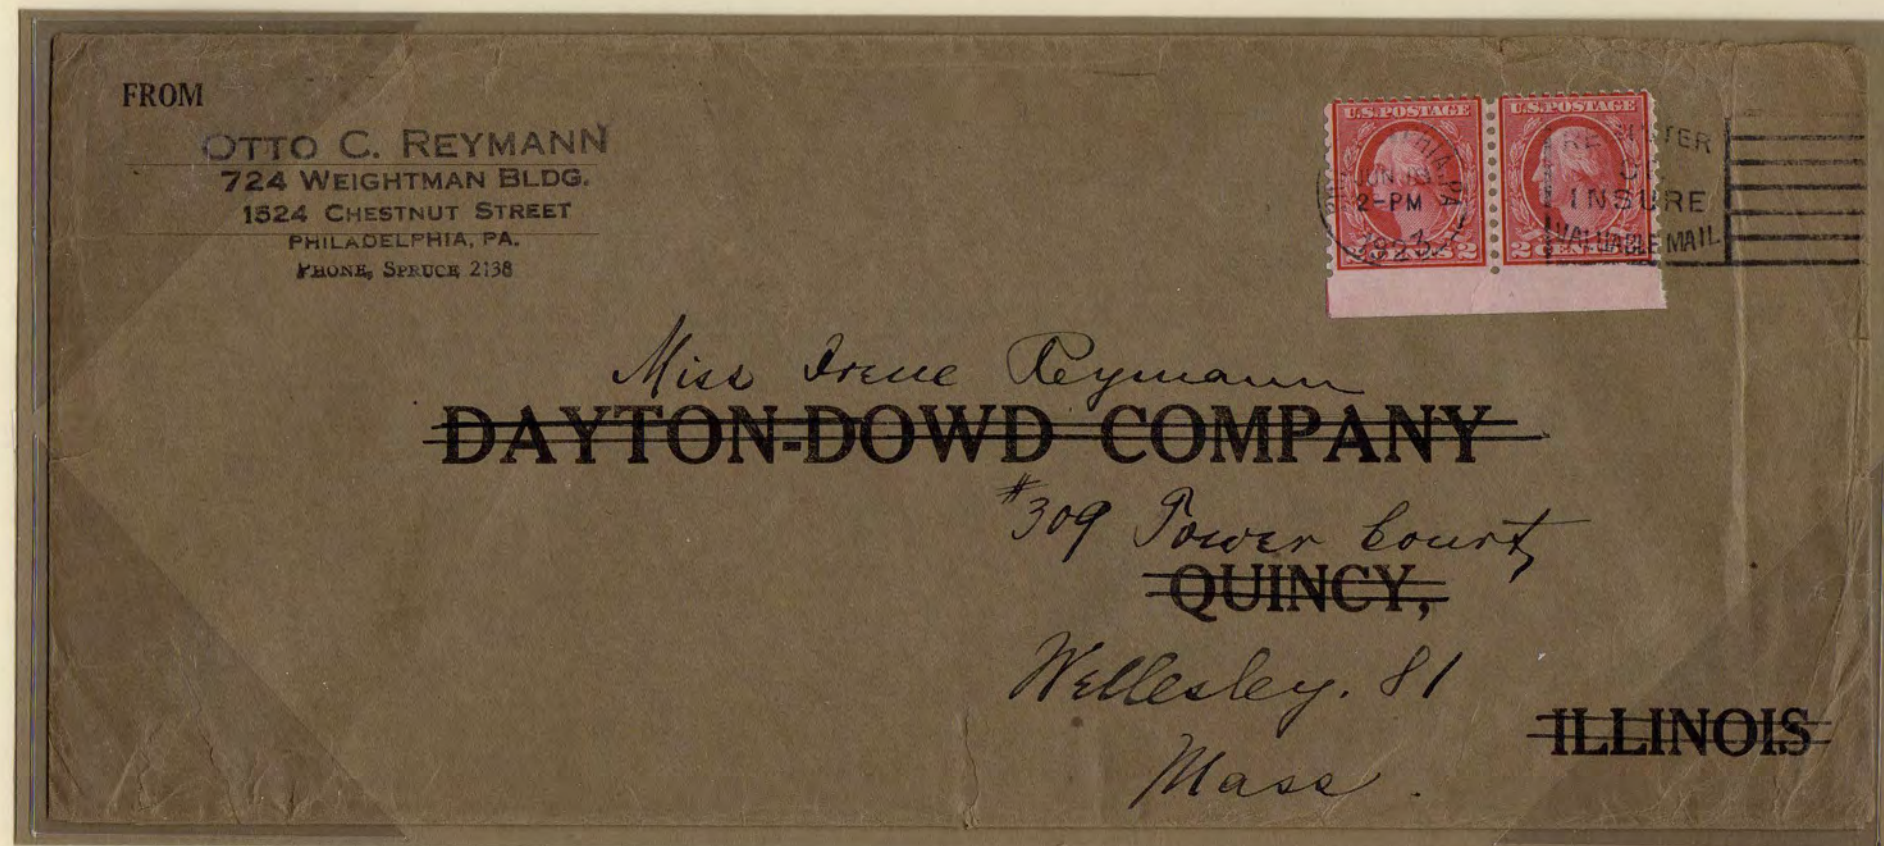 FROM
OTTO C. REYMANN
724 WEIGHTMAN BLDG.
1524 CHESTNUT STREET
PHILADELPHIA, PA.
PHONE, SPRUCE 2138
U.S. POSTAGE U.S. POSTAGE
JUN 18
2-PM
1923
REGISTER
OR
INSURE
VALUABLE MAIL
2 CENTS 2 2 CENTS 2
Miss Irene Reymann
DAYTON-DOWD COMPANY
#309 Tower Court,
QUINCY,
Wellesley. 81
ILLINOIS
Mass.